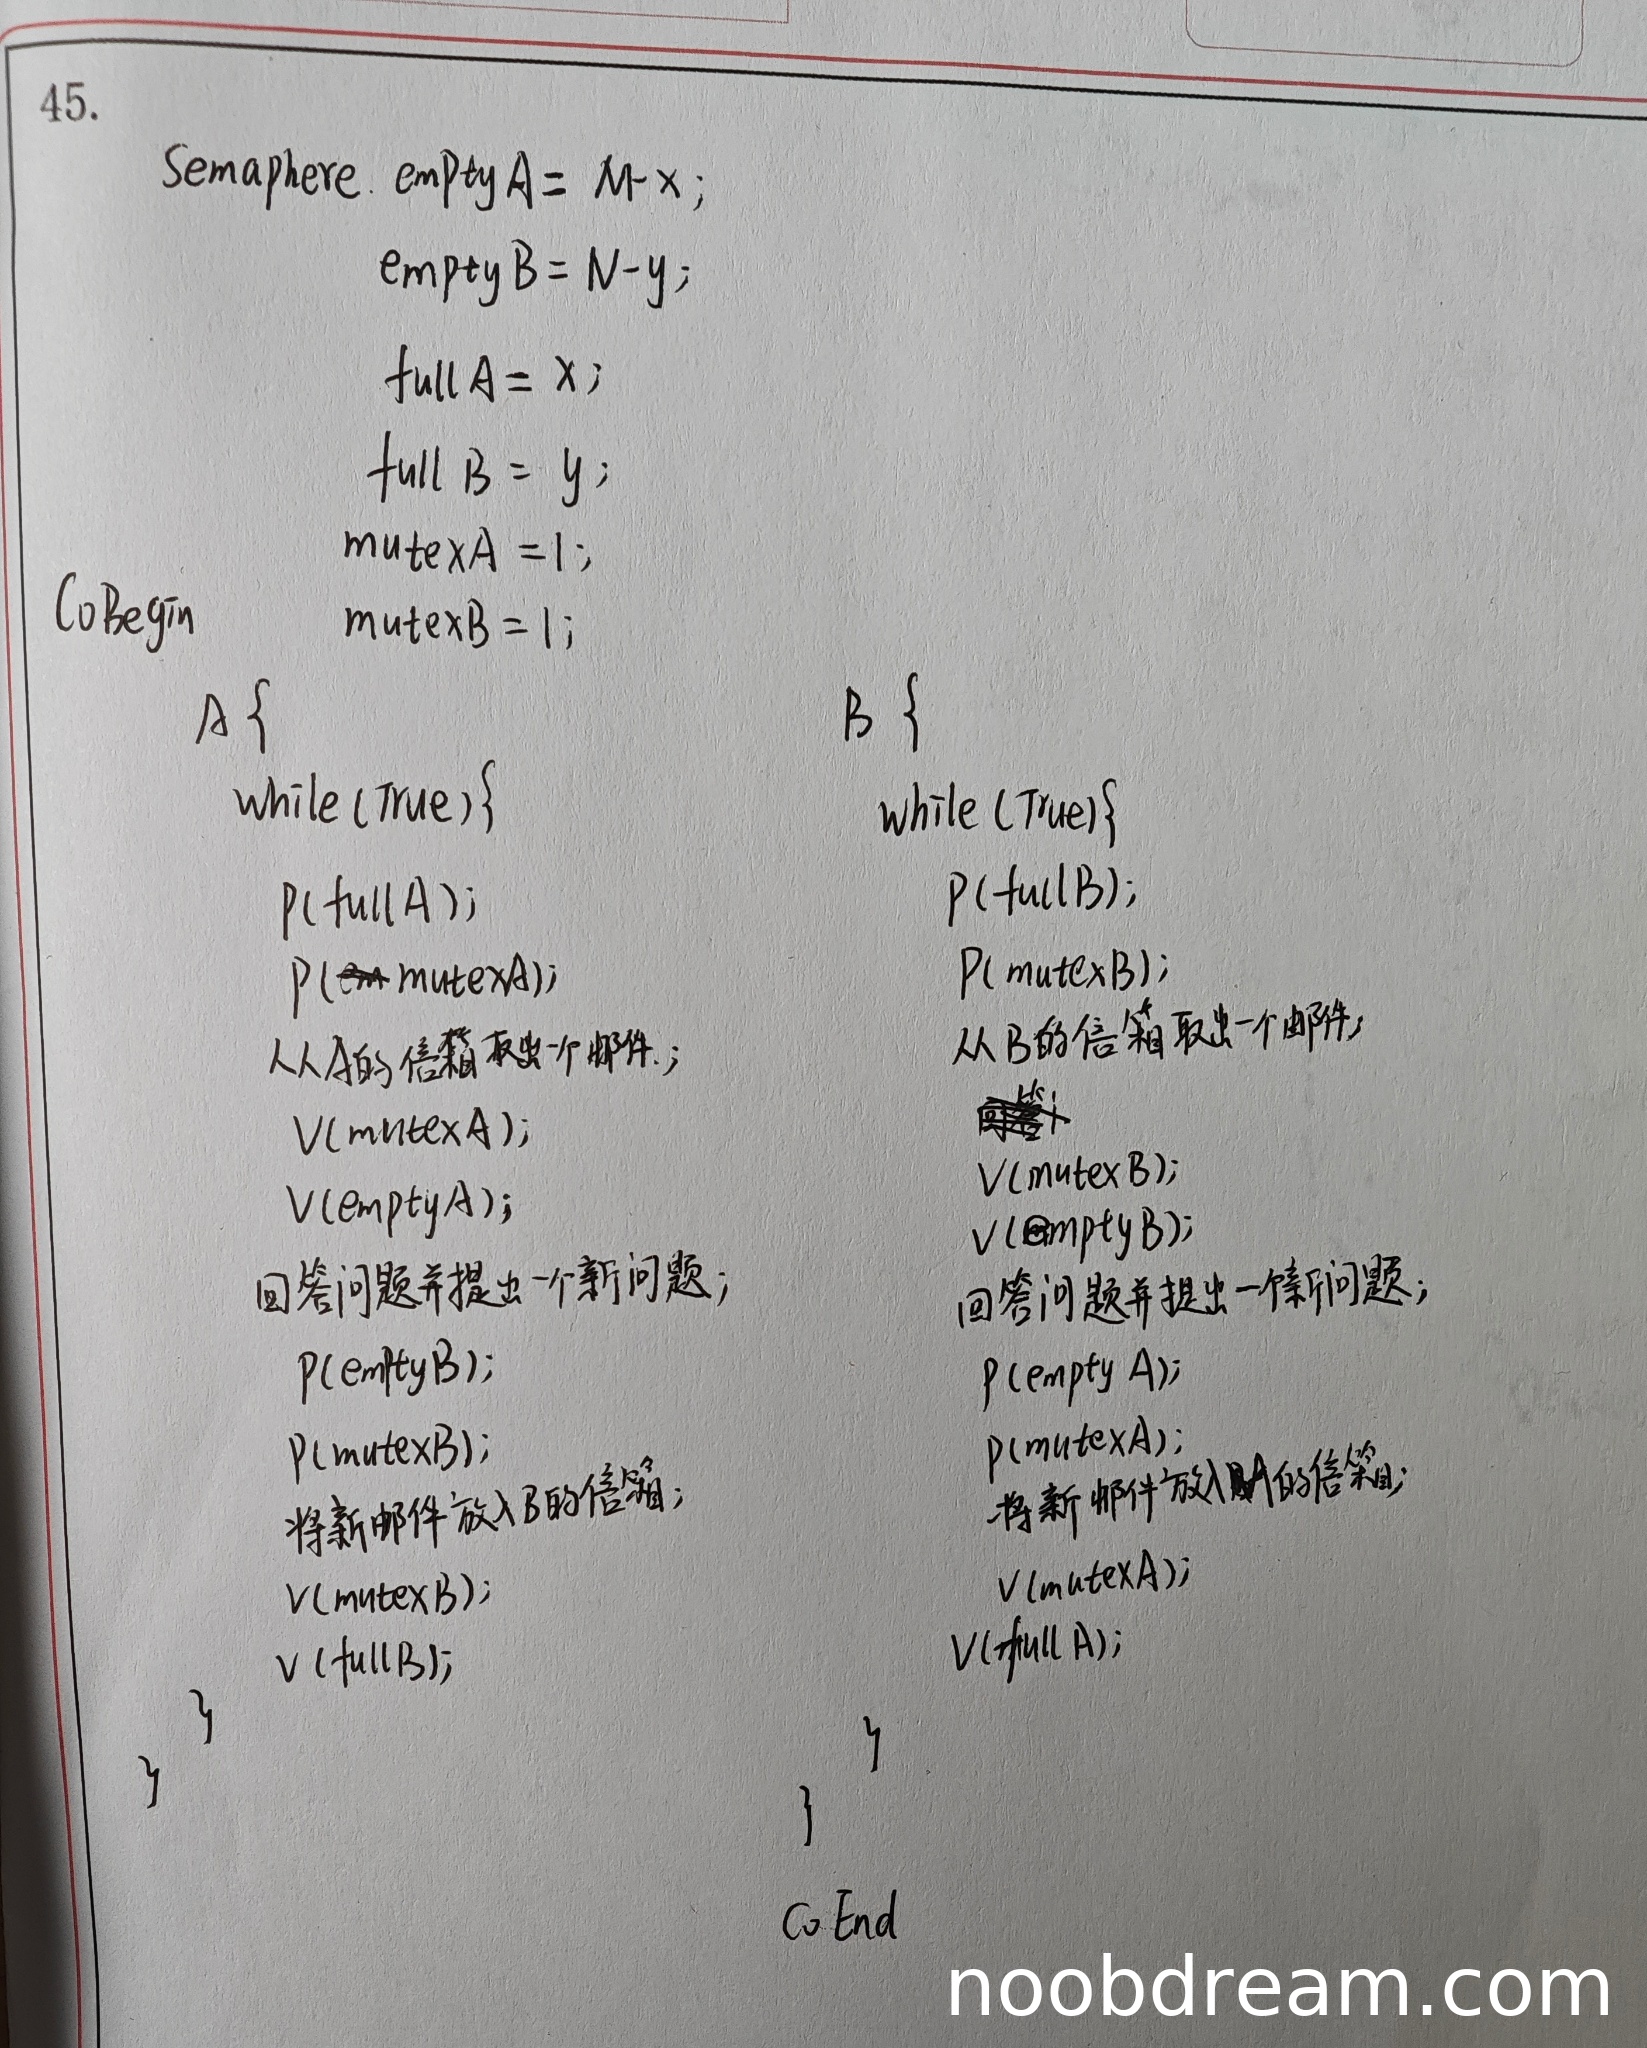 45.
Semaphere. emptyA = M-x;
emptyB = N-y;
fullA = x;
full B = y;
mutexA = 1;
CoBegin
mutexB = 1;
A {
while (True) {
P(fullA);
P(mutexA);
从A的信箱取出一个邮件.;
V(mutexA);
V(emptyA);
回答问题并提出一个新问题;
P(emptyB);
P(mutexB);
将新邮件放入B的信箱;
V(mutexB);
V(fullB);
}
}
B {
while (True) {
P(fullB);
P(mutexB);
从B的信箱取出一个邮件;
V(mutexB);
V(emptyB);
回答问题并提出一个新问题;
P(empty A);
P(mutexA);
将新邮件放入A的信箱;
V(mutexA);
V(full A);
}
}
CoEnd
noobdream.com